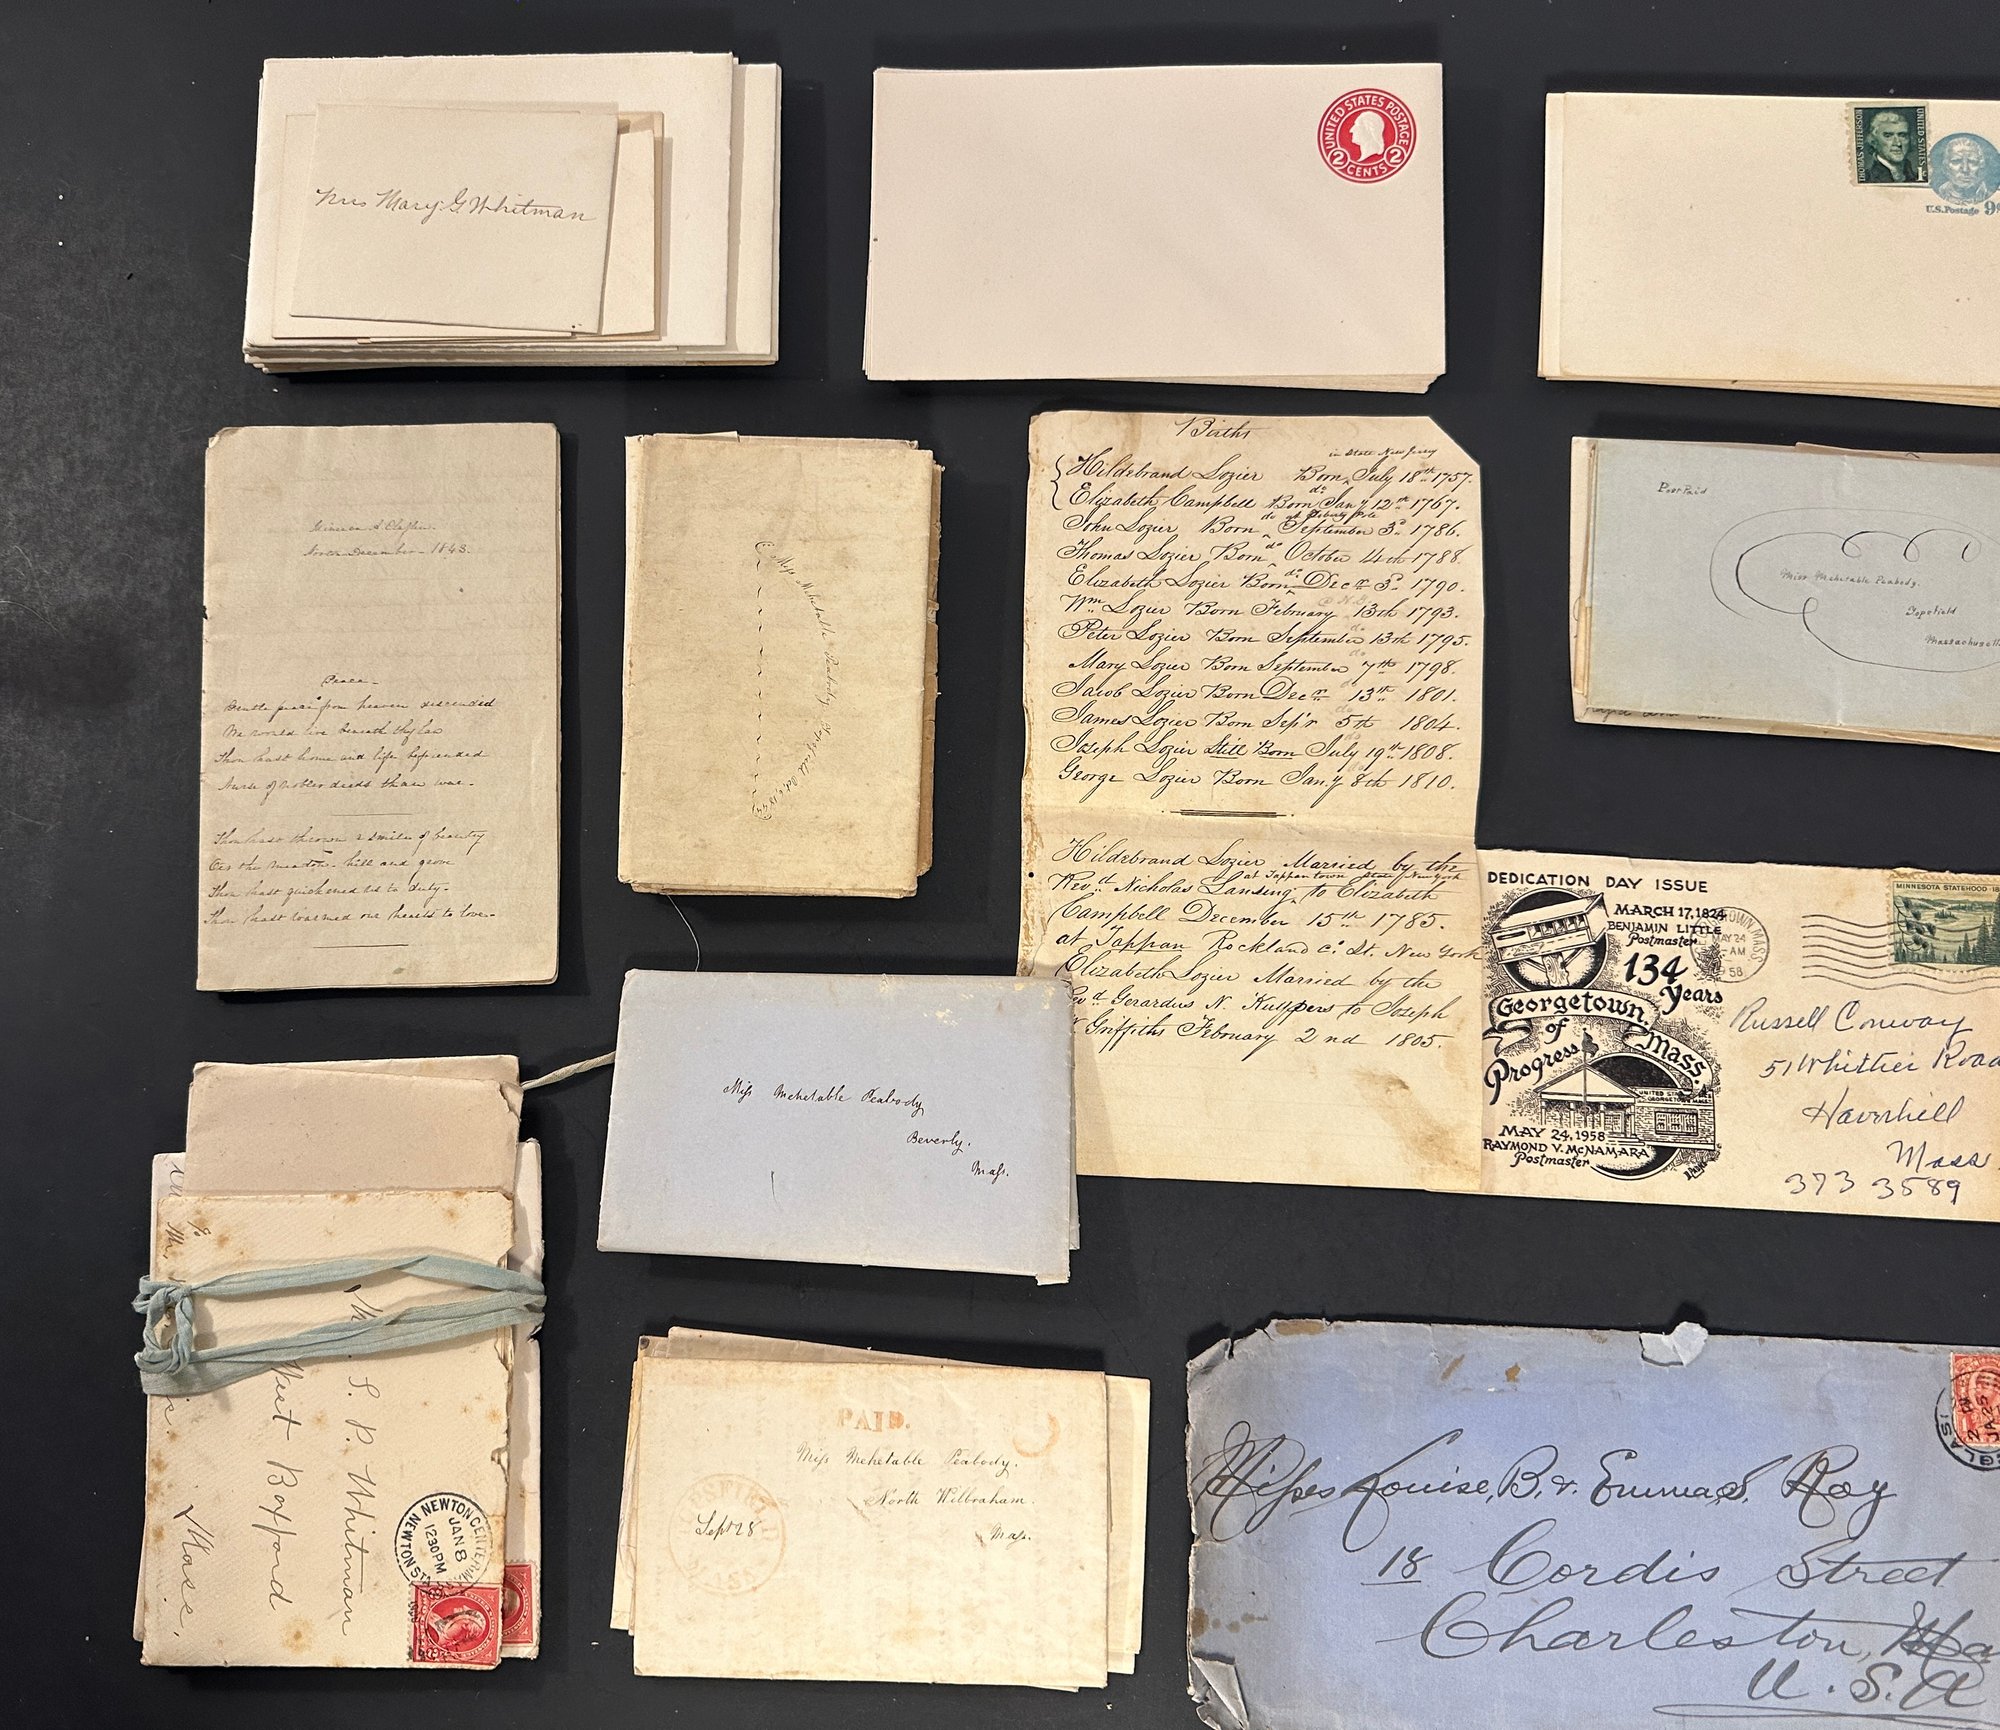 Mrs Mary G. Whitman
UNITED STATES POSTAGE
2 CENTS 2
THOMAS JEFFERSON
UNITED STATES
1¢
U.S. Postage 9¢
December - 1843.
Peace -
Gentle peace from heaven descended
We would live beneath thy law
Thou hast home and life befriended
Nurse of nobler deeds than war -
Thou hast thrown a smile of beauty
O'er the meadow - hill and grove
Thou hast quickened us to duty -
Thou hast warmed our hearts to love -
Miss Mehetable Peabody
Births
in State New Jersey
Hildebrand Lozier Born July 18th 1757.
do
Elizabeth Campbell Born Jany 12th 1767.
do at Liberty Pole
John Lozier Born September 3d 1786.
do
Thomas Lozier Born October 14th 1788.
do
Elizabeth Lozier Born Decr 3d 1790.
Wm Lozier Born February 13th 1793.
do
Peter Lozier Born September 13th 1795.
do
Mary Lozier Born September 7th 1798.
Jacob Lozier Born Decr 13th 1801.
do
James Lozier Born Sep'r 5th 1804.
do
Joseph Lozier Still Born July 19th 1808.
George Lozier Born Jan.y 8th 1810.
Hildebrand Lozier Married by the
at Tappan town state New York
Revd Nicholas Lansing to Elizabeth
Campbell December 15th 1785.
at Tappan Rockland Co St. New York
Elizabeth Lozier Married by the
Revd Gerardus N. Kuppers to Joseph
Griffiths February 2nd 1805.
Post Paid
Miss Mehetable Peabody.
Topsfield
Massachusett
DEDICATION DAY ISSUE
MARCH 17, 1824
BENJAMIN LITTLE
Postmaster
134
Years
Georgetown, Mass.
of
Progress
UNITED STA
GEORGETOWN MASS
MAY 24, 1958
RAYMOND V. McNAMARA
Postmaster
TOWN MASS
MAY 24
AM
1958
MINNESOTA STATEHOOD 18
Russell Conway
51 Whittier Road
Haverhill
Mass.
373 3589
Miss Mehetable Peabody
Beverly.
Mass.
To
Mr.
S. P. Whitman
West Boxford
Mass.
NEWTON CENTER
JAN 8
1230PM
NEWTON STA
PAID.
Miss Mehetable Peabody.
North Wilbraham.
Mass.
Sept 28
MASS
2
JA 25
Misses Louise, B. & Emma, S. Roy
18 Cordis Street
Charleston, Ma
U.S.A